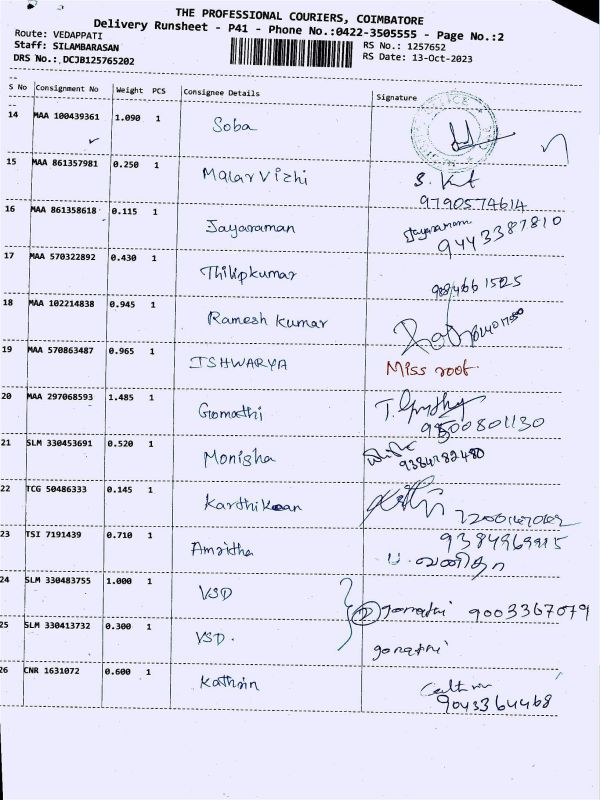 THE PROFESSIONAL COURIERS, COIMBATORE
Delivery Runsheet - P41 - Phone No.:0422-3505555 - Page No.:2
Route: VEDAPPATI
Staff: SILAMBARASAN RS No.: 1257652
DRS No.: DCJB125765202 RS Date: 13-Oct-2023
S No Consignment No Weight PCS Consignee Details Signature
14 MAA 100439361 1.090 1 Soba
15 MAA 861357981 0.250 1 Malar Vizhi
9790574614
16 MAA 861358618 0.115 1 Jayaraman Jayaraman
9443387810
17 MAA 570322892 0.430 1 Thilipkumar
18 MAA 102214838 0.945 1 Ramesh Kumar
19 MAA 570863487 0.965 1 ISHWARYA Miss root
20 MAA 297068593 1.485 1 Gomathi
21 SLM 330453691 0.520 1 Monisha
22 TCG 50486333 0.145 1 Karthikean
23 TSI 7191439 0.710 1 Amritha
24 SLM 330483755 1.000 1 VSD 9003367079
25 SLM 330413732 0.300 1 VSD.
26 CNR 1631072 0.600 1 Kathrin
9043364468